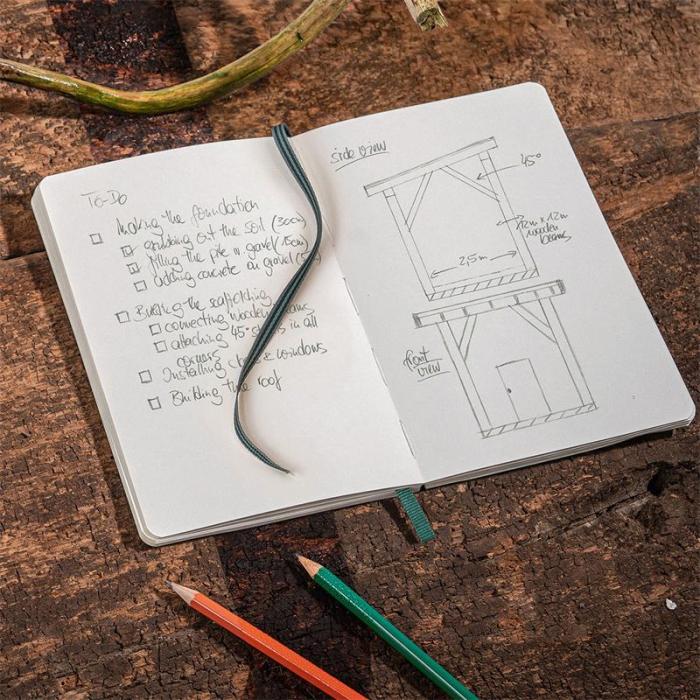 To-Do
Making the foundation
out the soil (30cm)
filling the pile w gravel (15cm)
adding concrete on gravel
Building the scaffolding
connecting wooden beams
attaching 45° in all
corners
Installing & windows
Building the roof
side view
45°
wooden
beams
2,5m
front
view